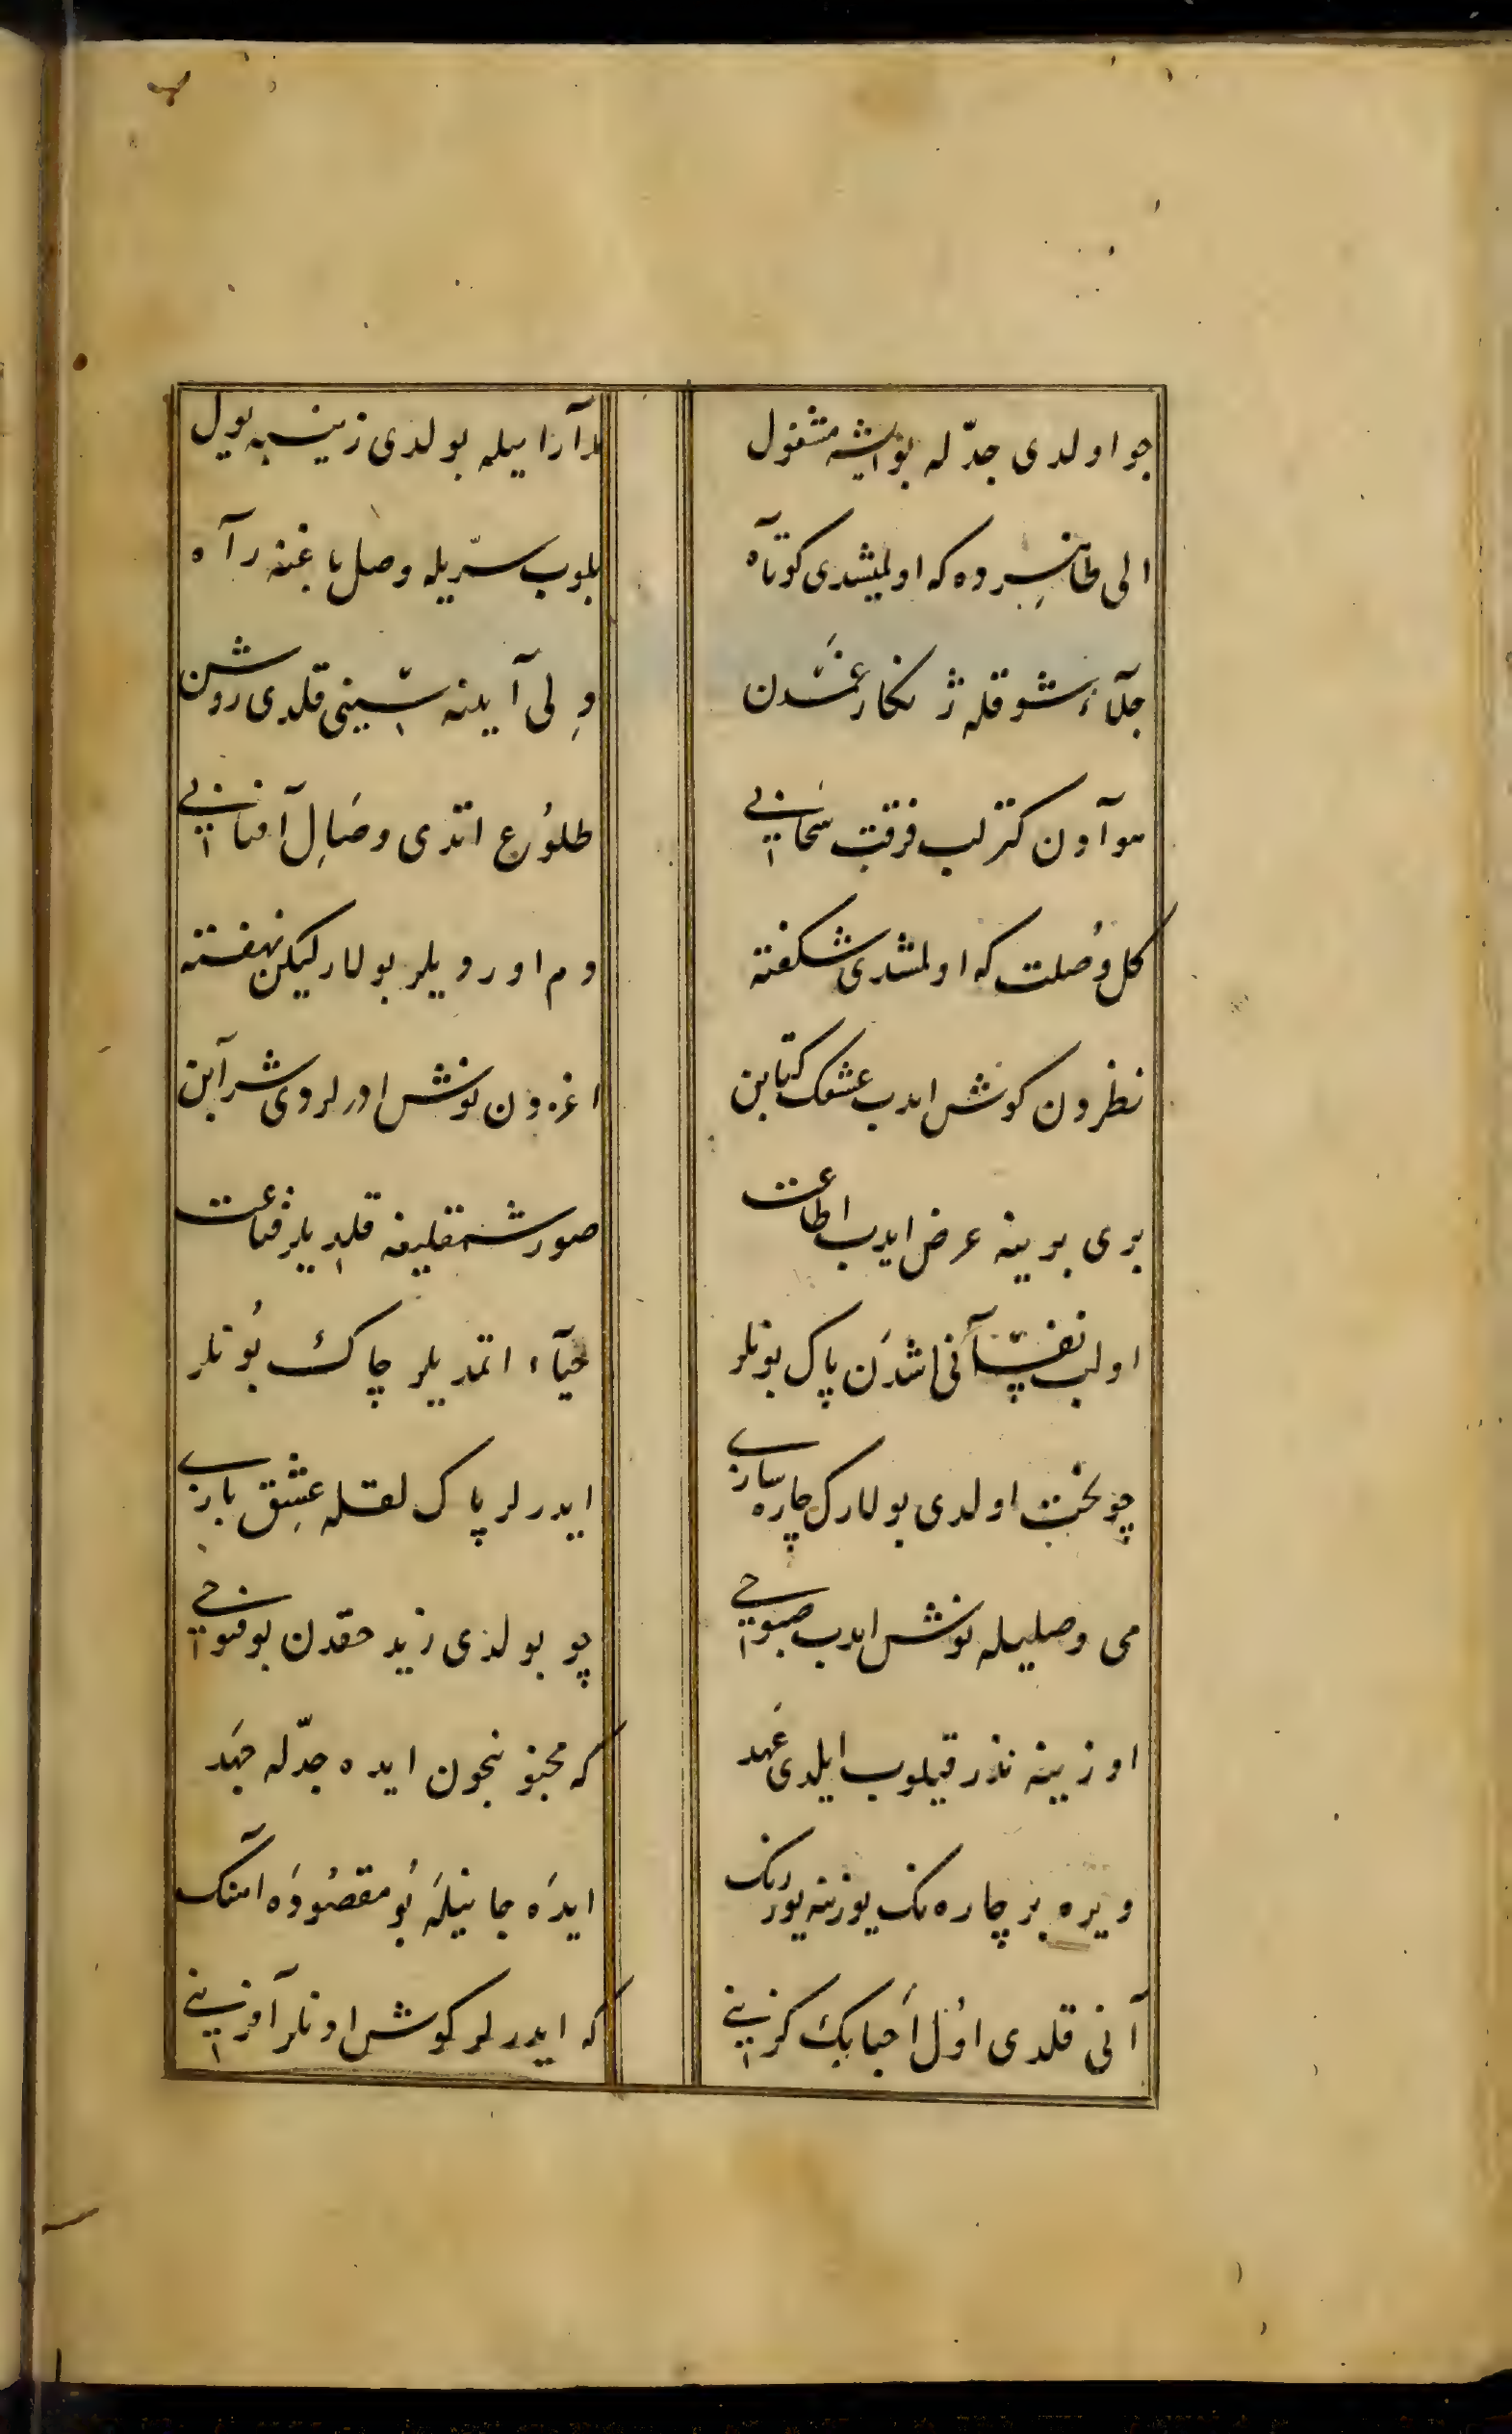 چو اولدی جدّله بو ایشه مشغول مدآرا ییله بولدی زینبه یول
الی طاهرده که اولمیشدی کوتآه بلوب سرّیله وصل باغنه رآه
جلآء شوقله ژنکار غمّدن دلی آیینه سینی قلدی روشن
هوآدن کترلب فرقت سحابی طلوُع اتدی وصَالِ آفتابی
کل وُصلت که اولمشدی شکفته دم اوردیلر بولار لیکن نهفته
نظردن کوش ایدب عشقک کتابن اغزدن نوش اورلردی شرآبن
بری برینه عرض ایدب اطاعت صورشمقلیغه قلدیلر قناعت
اولب نفسّآنی اشدَن پاک بونلر حیآء اتمدیلر چاک بُونلر
چو بخت اولدی بولارک چاره سازی ایدرلر پاک لقله عشِق بازی
می وصلیله نوش ایدب صبوحی چو بولدی زید حقدن بو فتوحی
اوزینه نذر قیلوب ایلدی عَهد که مجنو نجون ایده جدّله جهَد
ویره بر چاره نک یوزینه یوز رنک ایدَه جانیلَه بُو مقصُودَه آهنک
آنی قلدی اوُل اَحبابک کزینی که ایدرلر کوش اونلر آفرینی